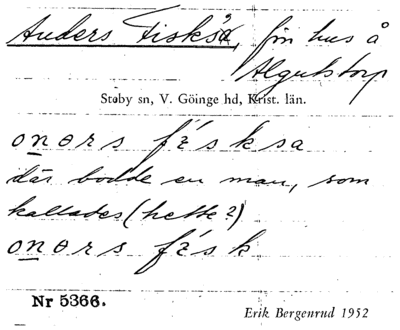 Anders Fisksa, fin hus å
Algutstorp
Stoby sn, V. Göinge hd, Krist. län.
onərs fisksa
där bodde en man, som
kallades (hette?)
onərs fisk
Nr 5366.
Erik Bergenrud 1952